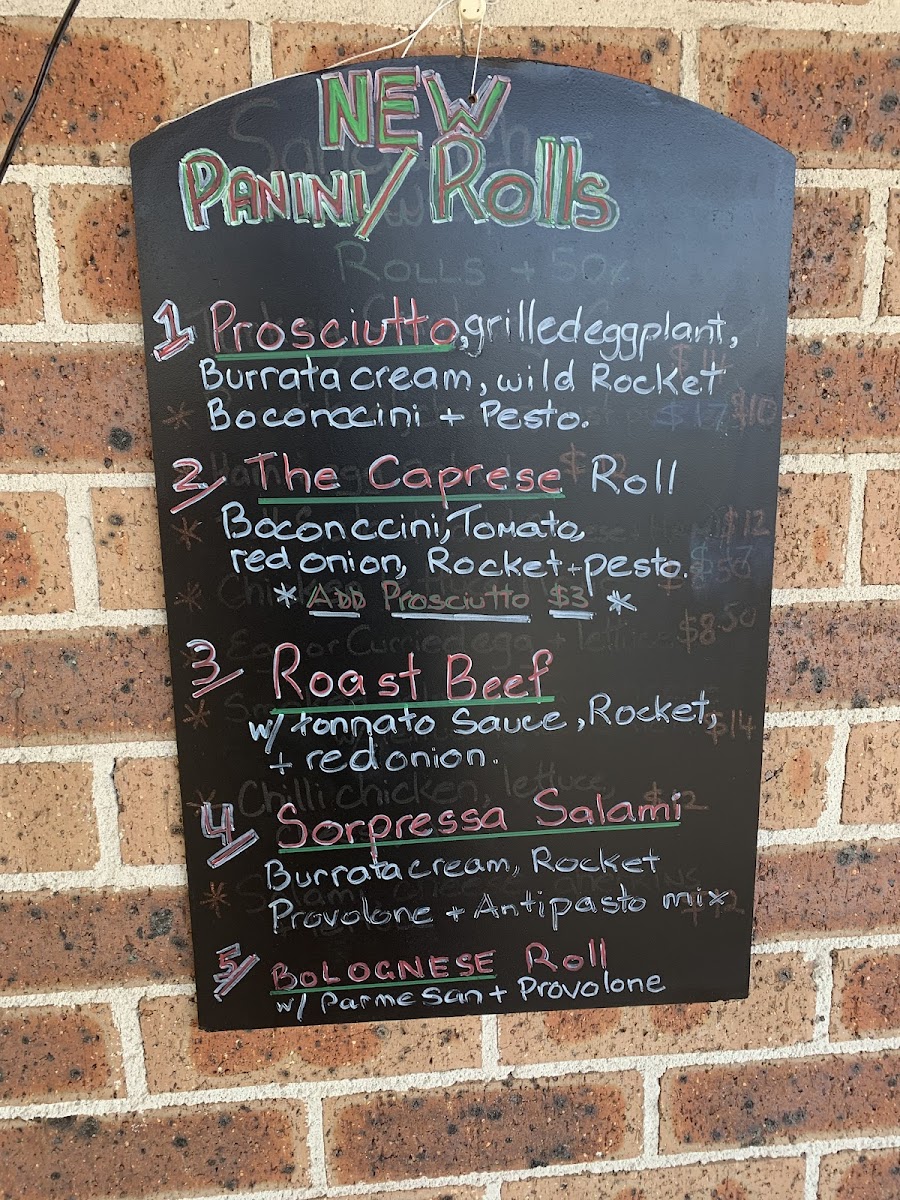 NEW
PANINI/Rolls
ROLLS + 50¢
1 Prosciutto, grilled eggplant,
Burrata cream, wild Rocket
$14
* Boconccini + Pesto. $17 $10
2/ The Caprese Roll
Boconccini, Tomato, $12
red onion, Rocket + pesto.
* ADD Prosciutto $3 *
$8.50
3/ Roast Beef
w/ tonnato Sauce, Rocket, $14
+ red onion.
Chilli chicken, lettuce
4/ Sorpressa Salami
Burrata cream, Rocket
Provolone + Antipasto mix
5/ BOLOGNESE Roll
w/ Parmesan + Provolone